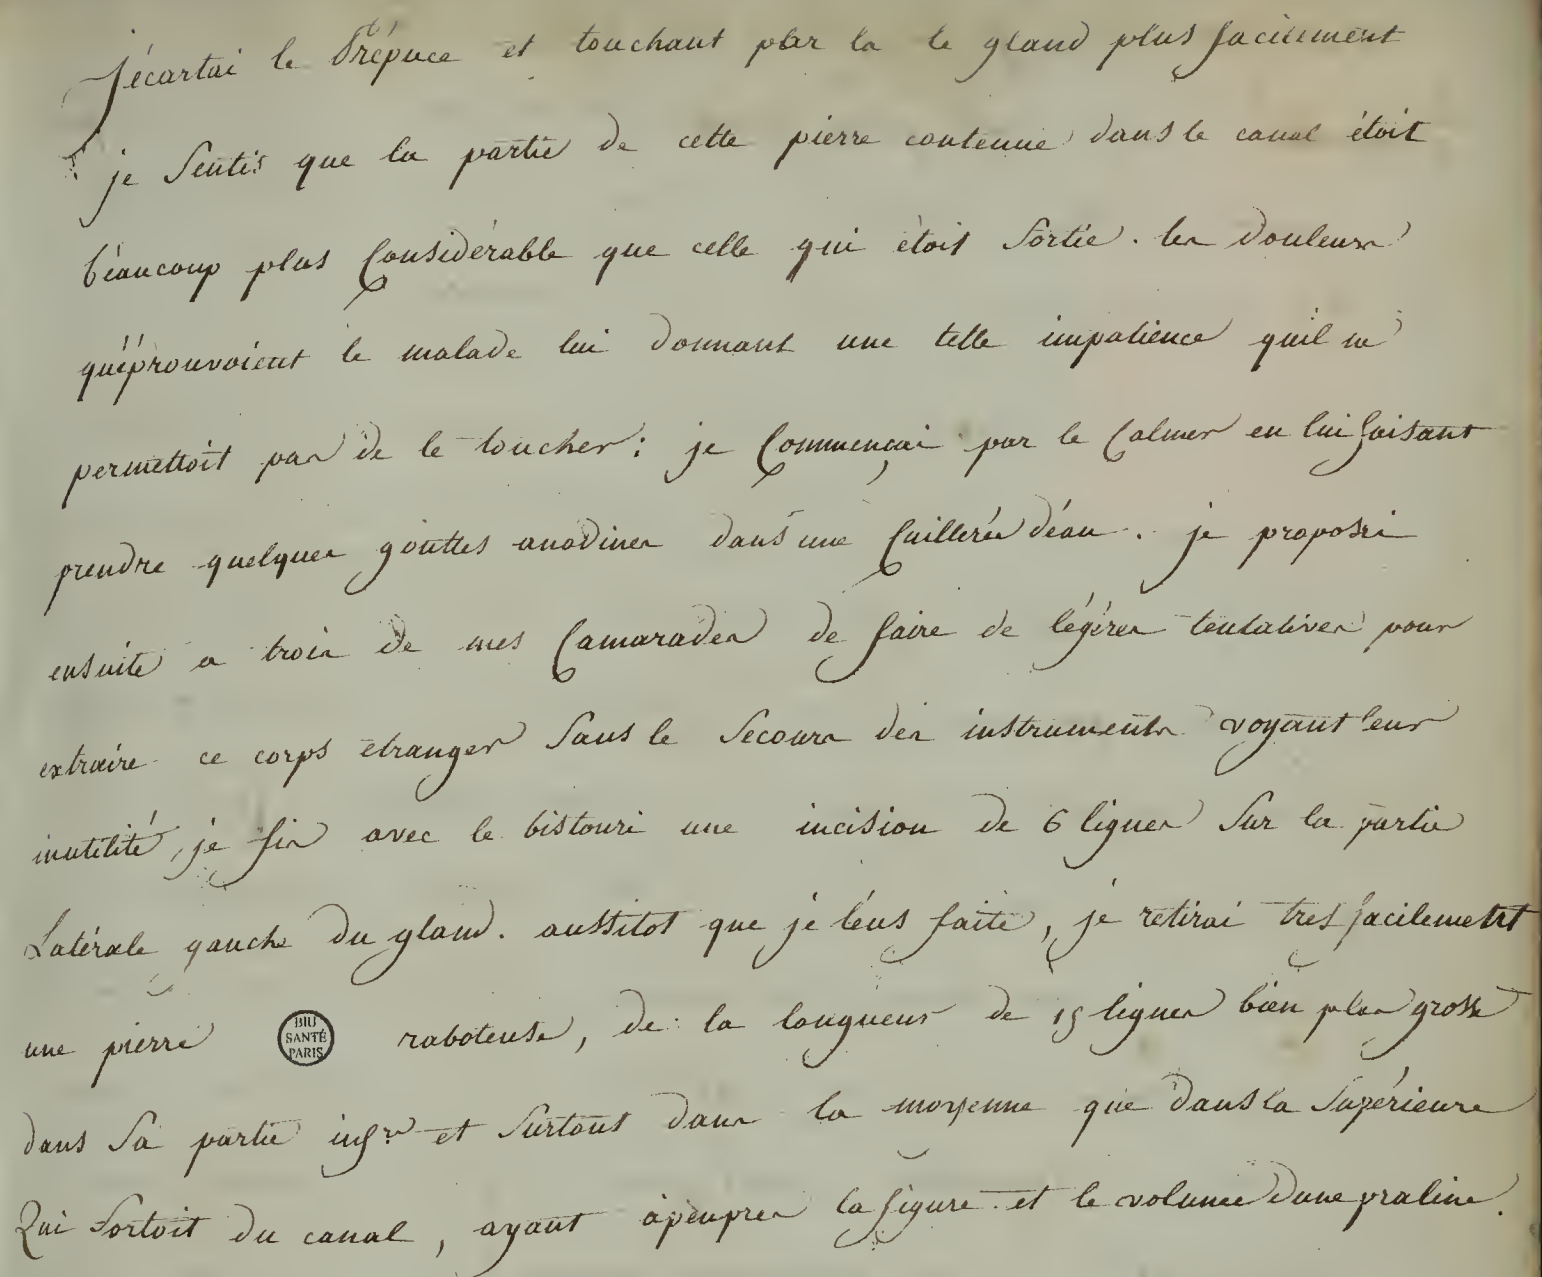 j'écartai le Prépuce et touchant par la le gland plus facilement
je Sentis que la partie de cette pierre contenue dans le canal étoit
béaucoup plus Considérable que celle qui étoit Sortie. les douleurs
qu'éprouvoient le malade lui donnant une telle impatience quil ne
permettoit pas de le toucher; je Commençai par le Calmer en lui faisant
prendre quelques gouttes anodines dans une Cuillerée déau. je proposai
ensuite a trois de mes Camarades de faire de légéres tentatives pour
extraire ce corps étranger Sans le Secours des instruments voyant leur
inutilité, je fis avec le bistouri une incision de 6 lignes Sur la partie
Latérale gauche du gland. aussitot que je léus faite, je retirai tres facilement
une pierre raboteuse, de la longueur de 15 lignes bien plus grosse
BIU SANTÉ PARIS
dans Sa partie infre et Surtout dans la moyenne que dans la Supérieure
Qui Sortoit du canal, ayant àpeupres la figure et le volume dune praline.